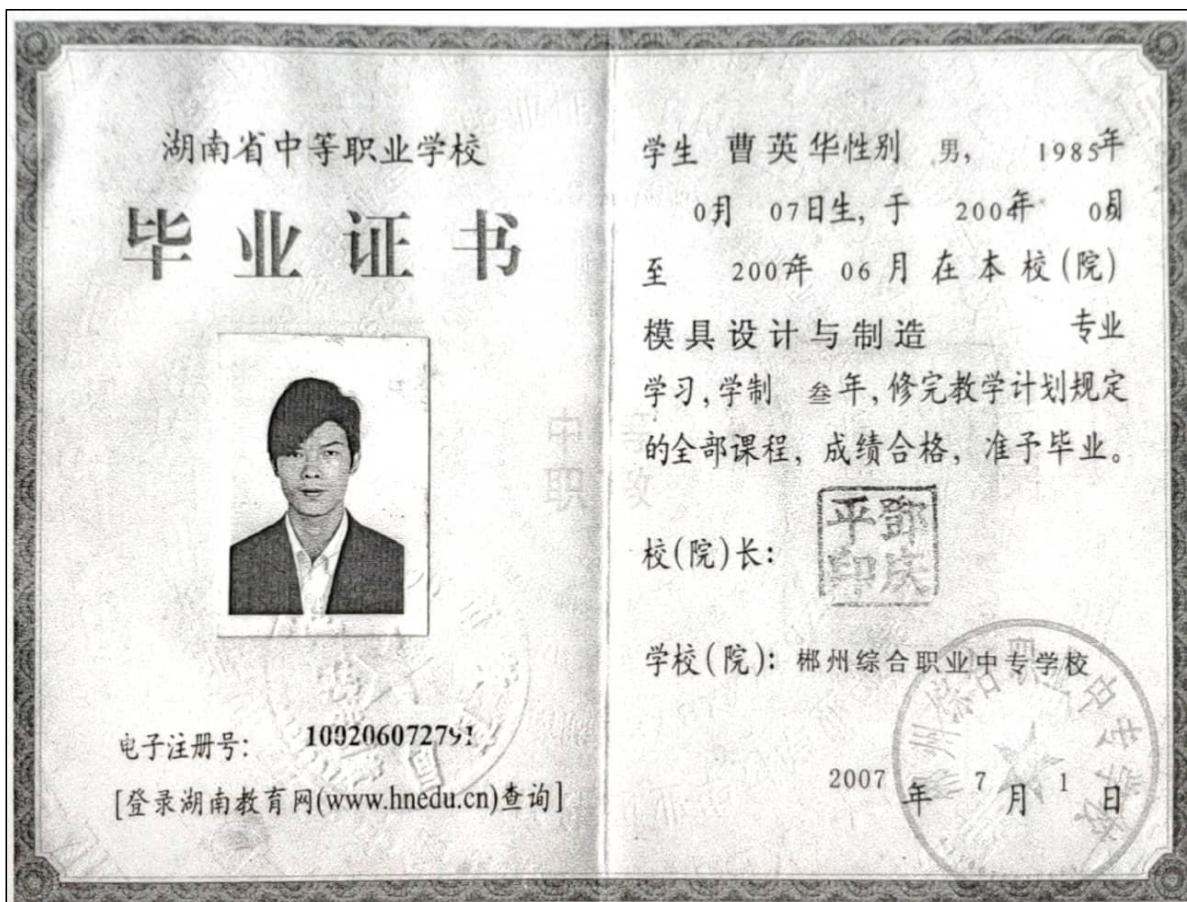 湖南省中等职业学校
毕业证书
电子注册号: 100206072791
[登录湖南教育网(www.hnedu.cn)查询]
学生 曹英华性别 男, 1985年
0月 07日生, 于 200年 0月
至 2007年 06月在本校(院)
模具设计与制造 专业
学习, 学制 叁年, 修完教学计划规定
的全部课程, 成绩合格, 准予毕业。
校(院)长:
邓庆平印
学校(院): 郴州综合职业中专学校
2007 年 7 月 1 日